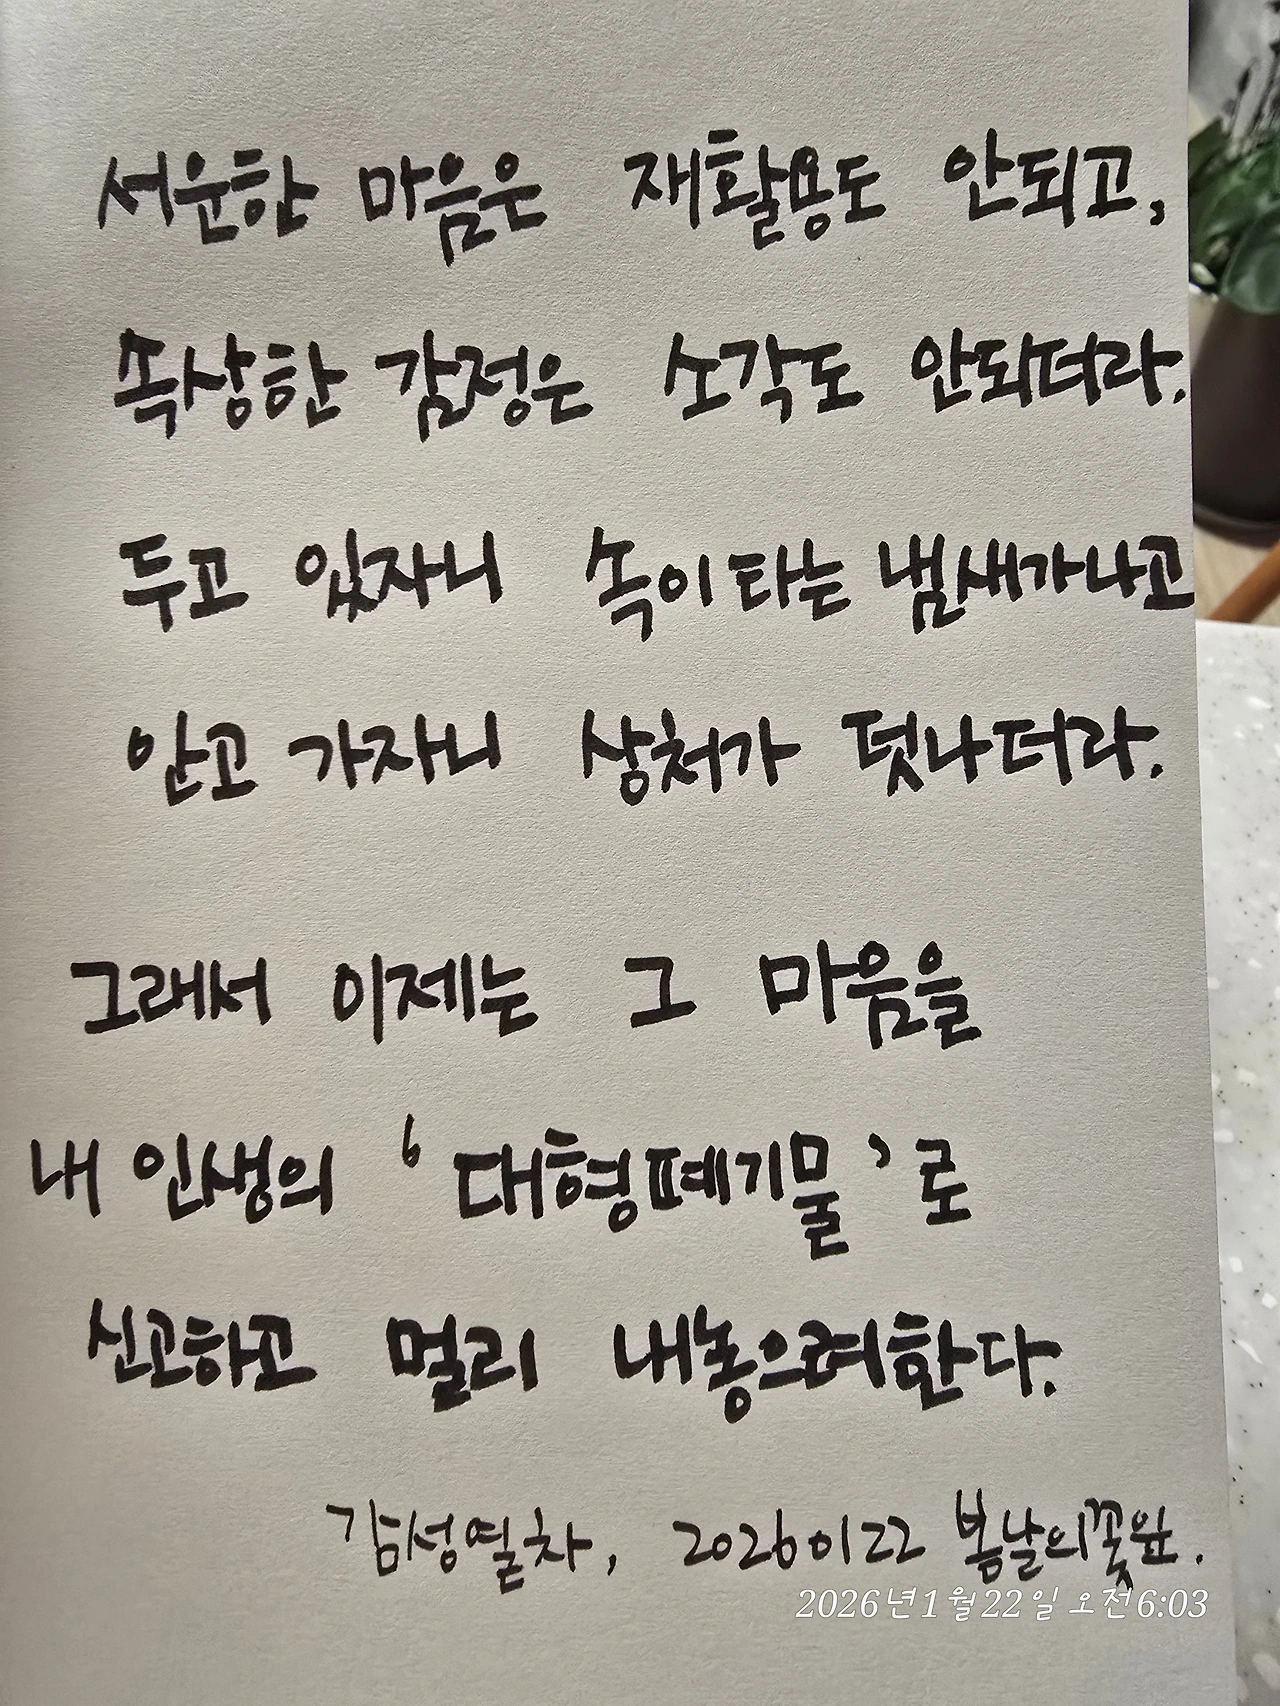 서운한 마음은 재활용도 안되고,
속상한 감정은 소각도 안되더라.
두고 있자니 속이 타는 냄새가나고
안고 가자니 상처가 덧나더라.
그래서 이제는 그 마음을
내 인생의 '대형폐기물'로
신고하고 멀리 내놓으려한다.
감성열차, 20260122 봄날의꽃윤.
2026년1월22일 오전6:03